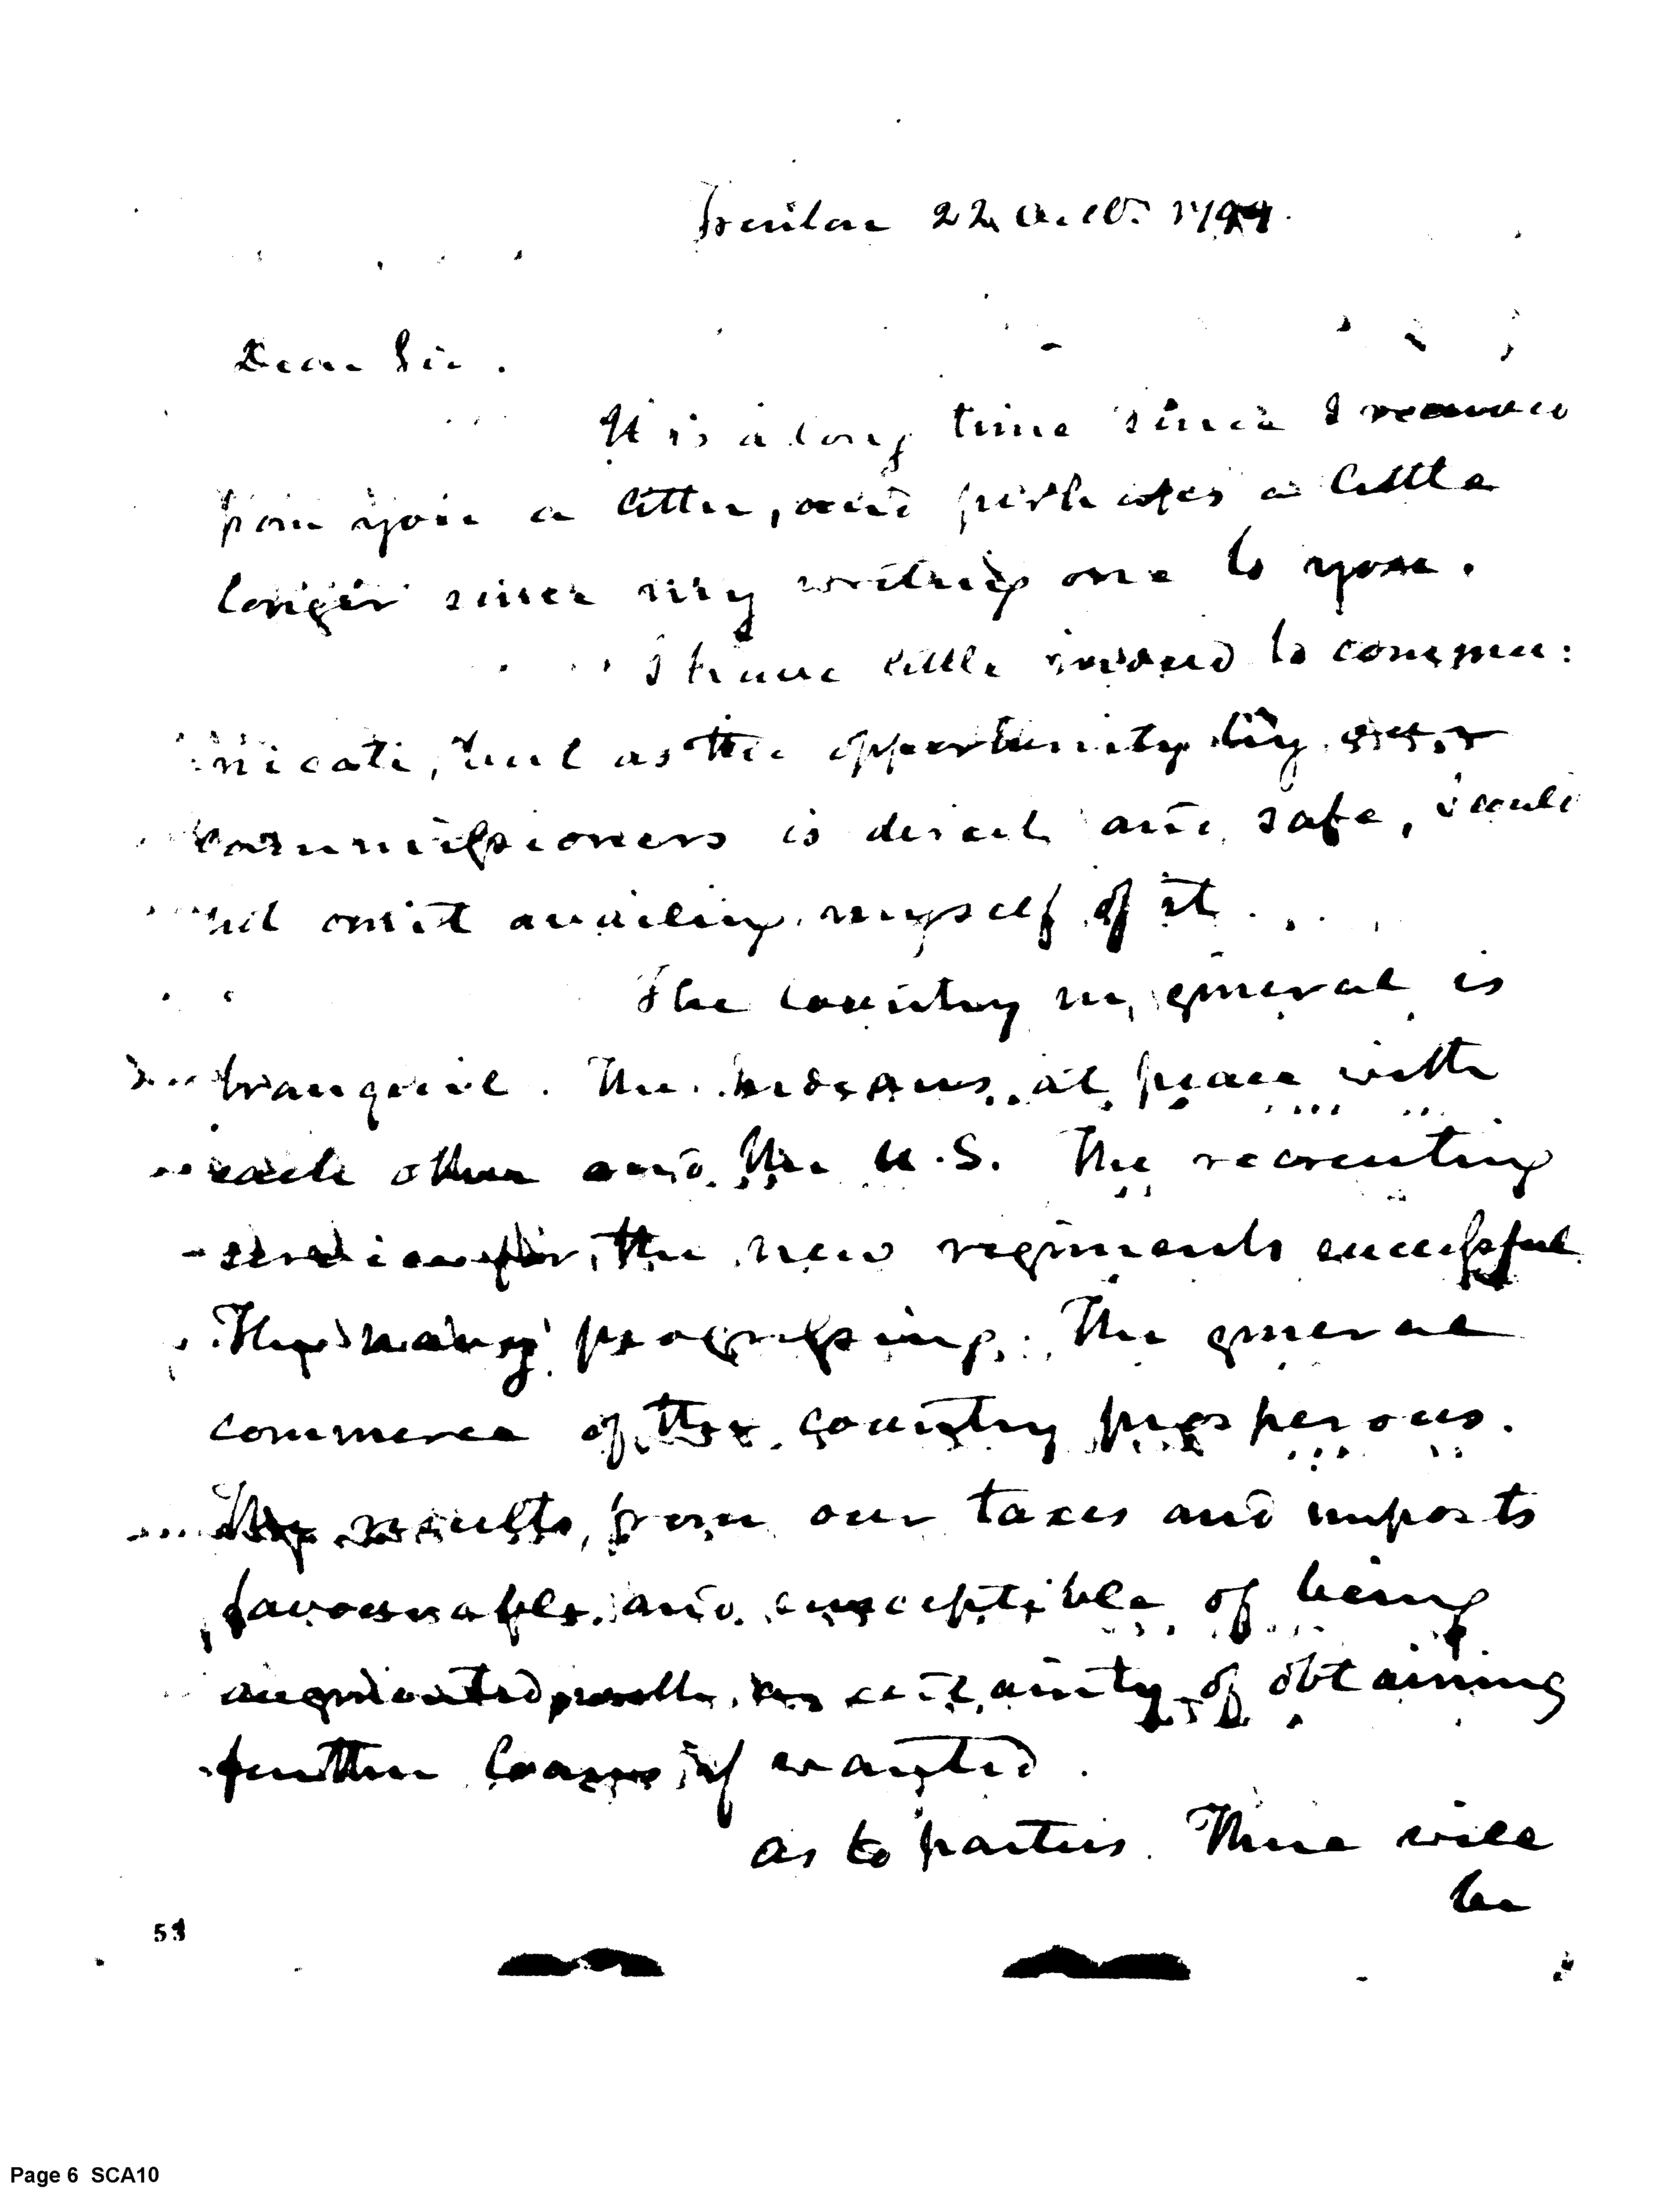 Trenton 22 Oct. 1799.
Dear Sir.
It is a long time since I received
from you a letter, and perhaps a little
longer since my writing one to you.
I have little indeed to commu:
nicate, but as the opportunity by our
commissioners is direct and safe, I could
not omit availing myself of it.
The country in general is
tranquil. The Indians at peace with
each other and the U.S. The recruiting
service for the new regiments successful
The navy progressing. The general
commerce of the country prosperous.
The results from our taxes and imposts
favourable and susceptible of being
augmented with certainty of obtaining
further loans if wanted.
as to parties. There will
be
53
Page 6 SCA10